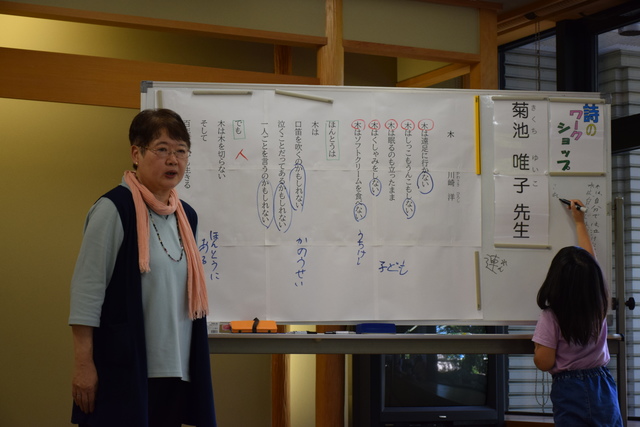 詩の
ワーク
ショップ
きくち ゆいこ
菊池 唯子 先生
木
川崎 洋
木は遠足に行かない
木はしっこもうんこもしない
木は眠るのも立ったまま
木はくしゃみをしない
木はソフトクリームを食べない
ほんとうは
木は
口笛を吹くのかもしれない
泣くことだってあるかもしれない
一人ごとを言うのかもしれない
でも
人
木は木を切らない
そして
連
れん
子ども
かのうせい
ほんとうに
ある